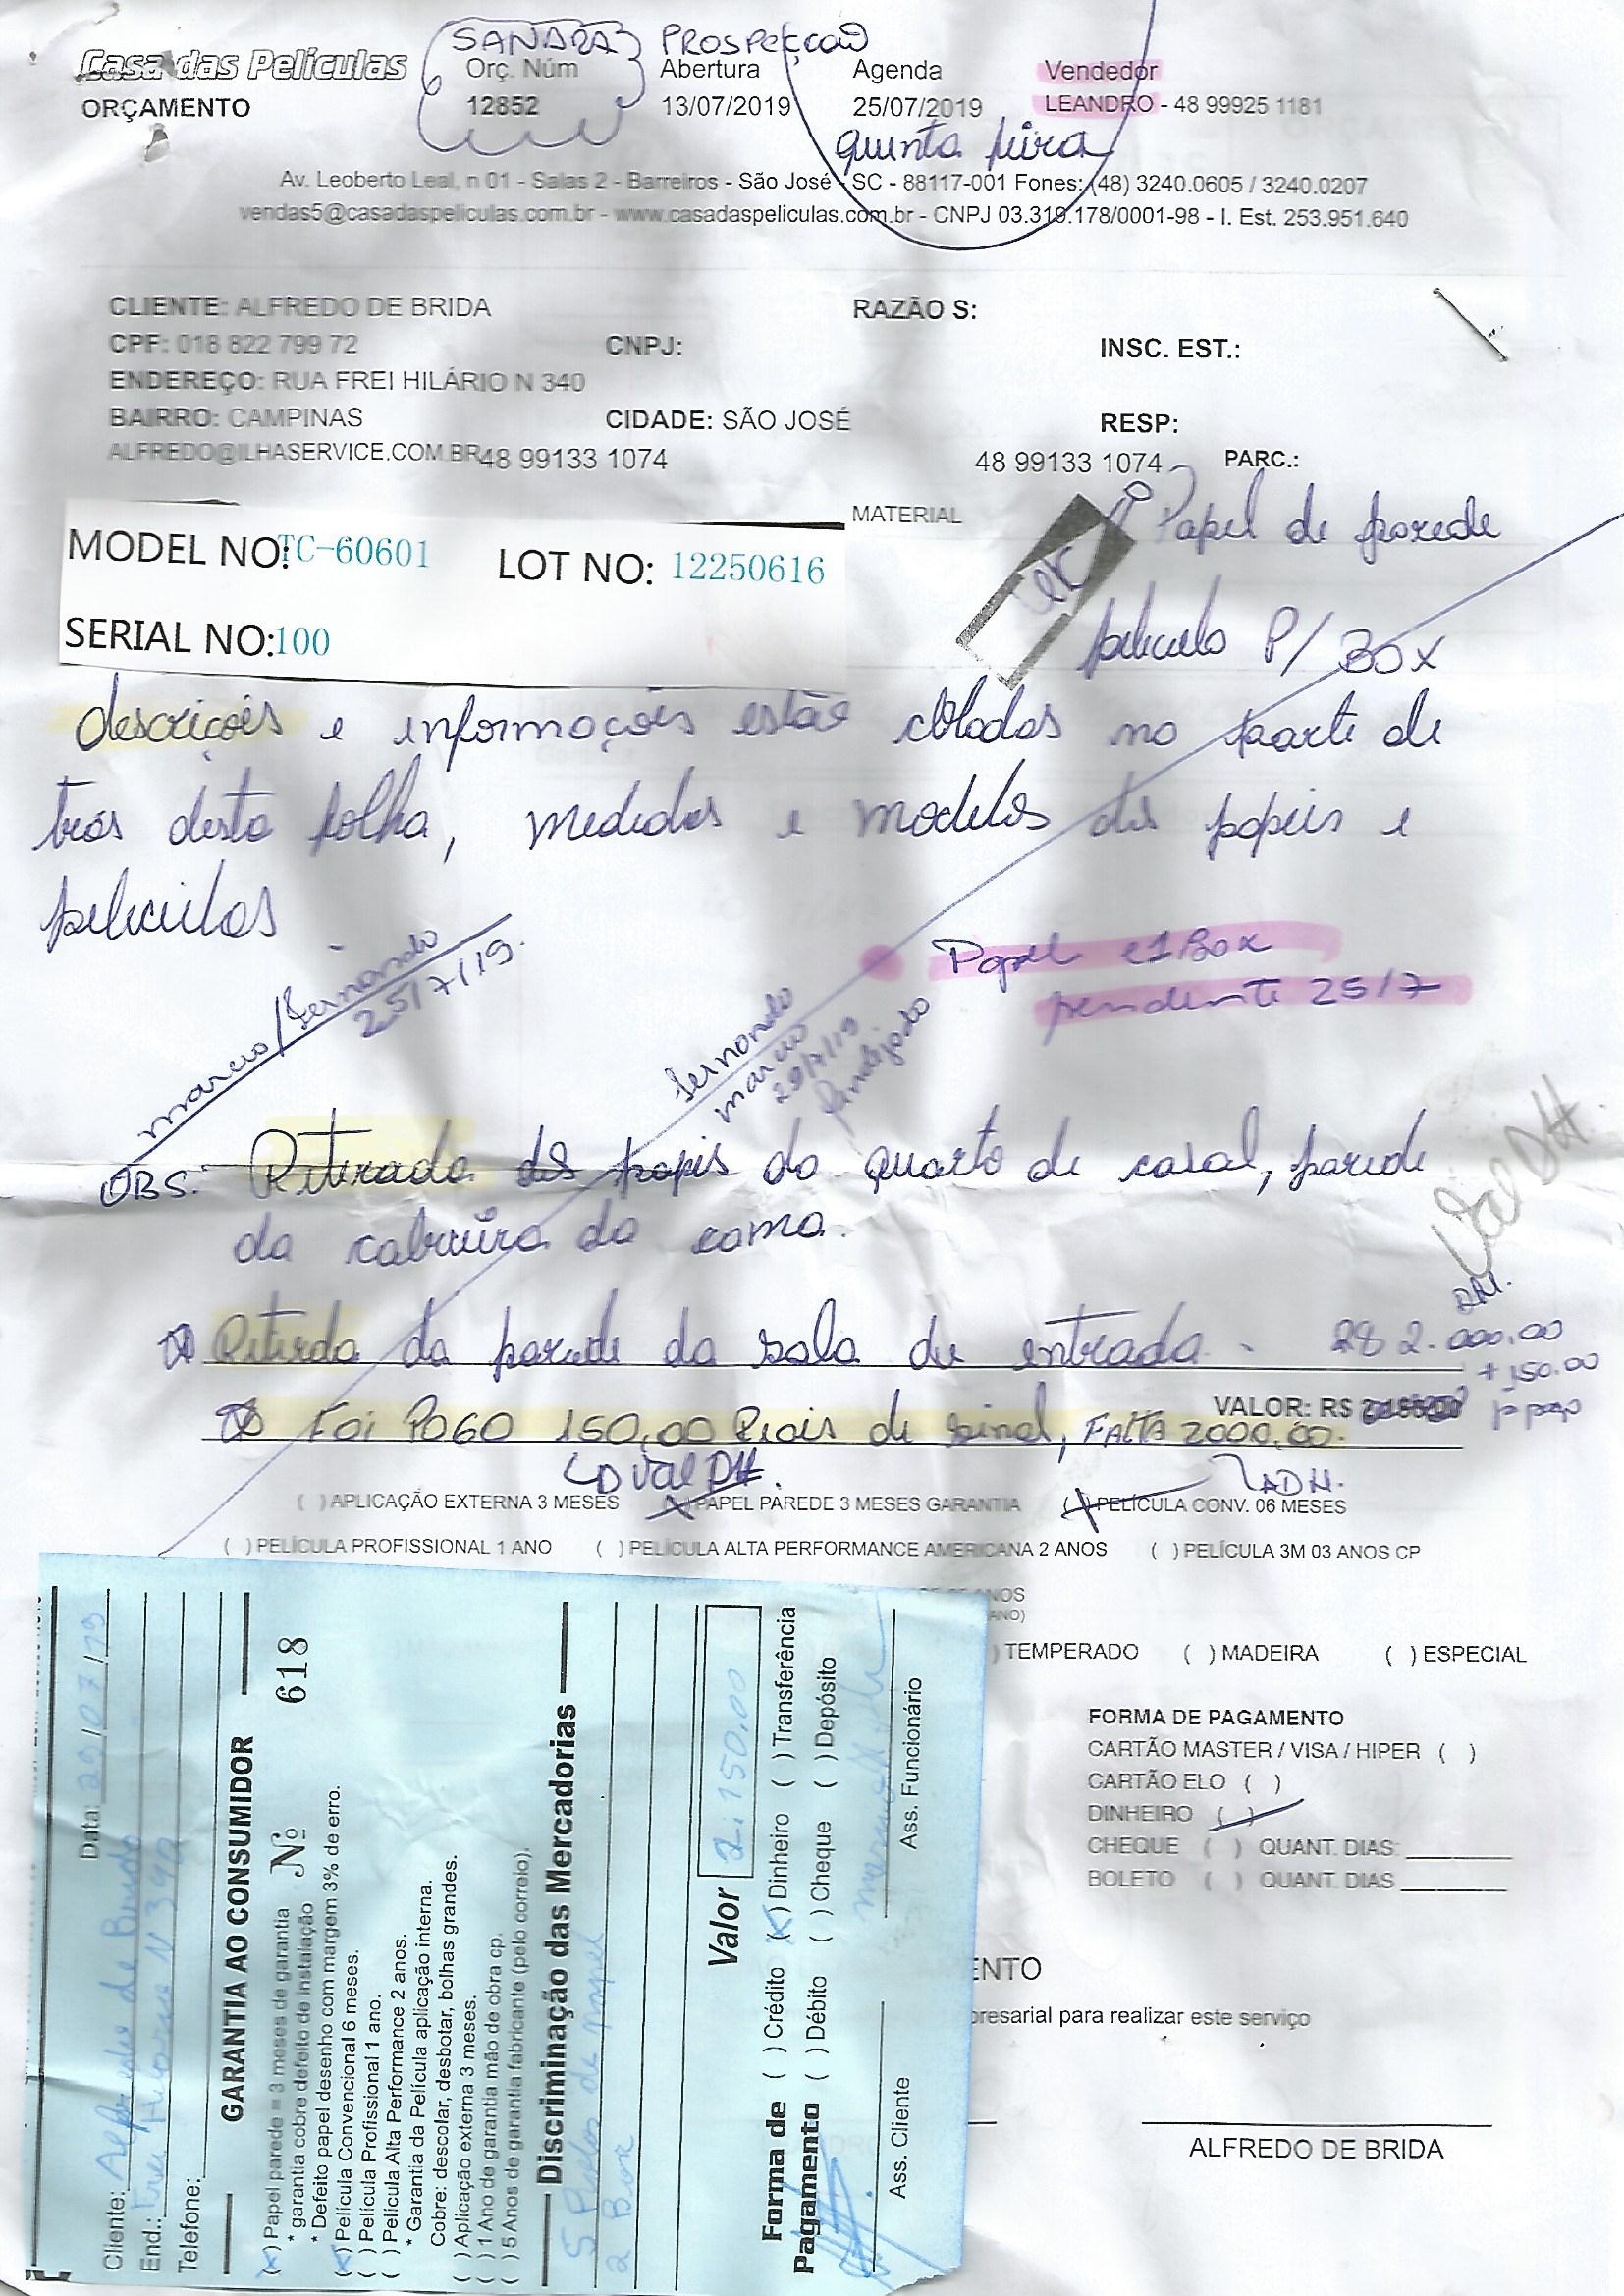 SANDRA PROSPECÇÃO
Casa das Películas
Orç. Núm Abertura Agenda Vendedor
ORÇAMENTO 12852 13/07/2019 25/07/2019 LEANDRO - 48 99925 1181
quinta feira
Av. Leoberto Leal, n 01 - Salas 2 - Barreiros - São José - SC - 88117-001 Fones: (48) 3240.0605 / 3240.0207
vendas5@casadaspeliculas.com.br - www.casadaspeliculas.com.br - CNPJ 03.319.178/0001-98 - I. Est. 253.951.640
CLIENTE: ALFREDO DE BRIDA RAZÃO S:
CPF: 018 822 799 72 CNPJ: INSC. EST.:
ENDEREÇO: RUA FREI HILÁRIO N 340
BAIRRO: CAMPINAS CIDADE: SÃO JOSÉ RESP:
ALFREDO@ILHASERVICE.COM.BR 48 99133 1074 48 99133 1074 PARC.:
MATERIAL
Papel de parede
MODEL NO: TC-60601 LOT NO: 12250616
SERIAL NO: 100
pelicula P/ BOX
descrições e informações estão coladas na parte de
trás desta folha, medidas e modelos dos papeis e
peliculas
Papel e 1 Box
pendente 25/7
marcio/Fernando
25/7/19.
Fernando
marcio
29/7/19
OBS: Retirada dos papeis do quarto de casal, parede
da cabeceira da cama.
Val DH.
Retirda da parede da sala de entrada. 282.000.00
DH.
+ 150.00
VALOR: R$
Foi PAGO 150,00 Reais de sinal, FALTA 2000,00.
Val DH. DH.
( ) APLICAÇÃO EXTERNA 3 MESES (X) PAPEL PAREDE 3 MESES GARANTIA (X) PELÍCULA CONV. 06 MESES
( ) PELÍCULA PROFISSIONAL 1 ANO ( ) PELÍCULA ALTA PERFORMANCE AMERICANA 2 ANOS ( ) PELÍCULA 3M 03 ANOS CP
ANOS
ANO)
) TEMPERADO ( ) MADEIRA ( ) ESPECIAL
FORMA DE PAGAMENTO
CARTÃO MASTER / VISA / HIPER ( )
CARTÃO ELO ( )
DINHEIRO ( )
CHEQUE ( ) QUANT. DIAS:
BOLETO ( ) QUANT. DIAS
ENTO
presarial para realizar este serviço
ALFREDO DE BRIDA
Data: 29/07/19
Cliente: Alfredo de Brida
End.: Frei Hilario N 340
Telefone:
GARANTIA AO CONSUMIDOR
(X) Papel parede = 3 meses de garantia Nº 618
* garantia cobre defeito de instalação
* Defeito papel desenho com margem 3% de erro.
(X) Película Convencional 6 meses.
( ) Película Profissional 1 ano.
( ) Película Alta Performance 2 anos.
* Garantia da Película aplicação interna.
Cobre: descolar, desbotar, bolhas grandes.
( ) Aplicação externa 3 meses.
( ) 1 Ano de garantia mão de obra cp.
( ) 5 Anos de garantia fabricante (pelo correio).
Discriminação das Mercadorias
5 Rolos de papel
2 Box
Valor 2.150,00
Forma de Pagamento
( ) Crédito (X) Dinheiro ( ) Transferência
( ) Débito ( ) Cheque ( ) Depósito
Ass. Cliente Ass. Funcionário